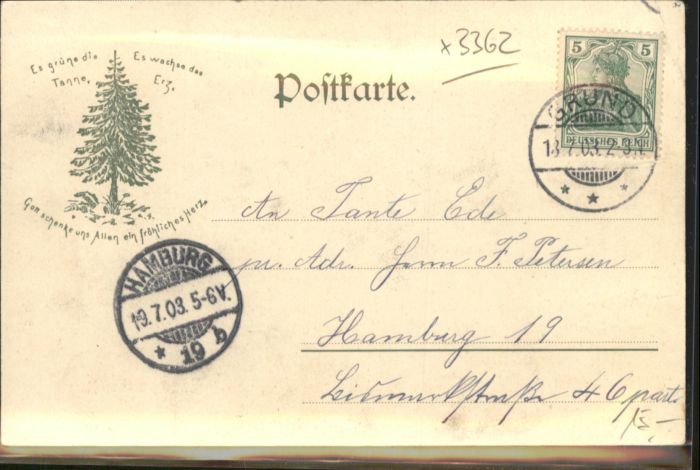 x3362
5 5
DEUTSCHES REICH
Es grüne die
Tanne,
Es wachse das
Erz,
Gott schenke uns Allen ein fröhliches Herz.
Postkarte.
GRUND
18.7.03. 2-3.N.
An Tante Ede
pr. Adr. Herrn F. Petersen
Hamburg 19
Bismarkstraße 46 part.
HAMBURG
19.7.03. 5-6V.
* 19 b
15,-